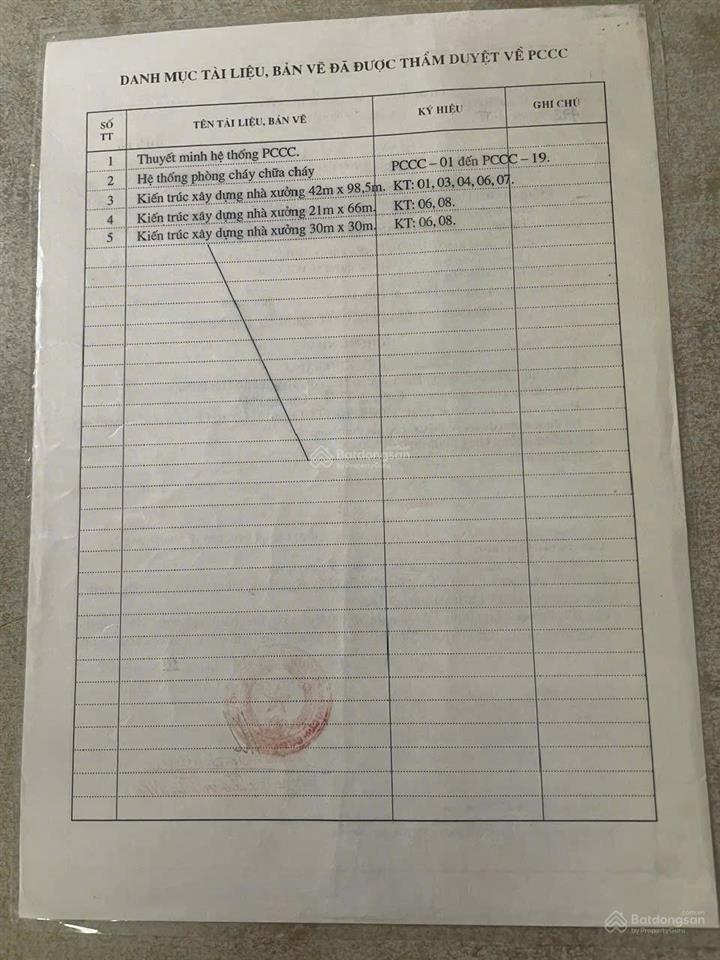 DANH MỤC TÀI LIỆU, BẢN VẼ ĐÃ ĐƯỢC THẨM DUYỆT VỀ PCCC
SỐ TT TÊN TÀI LIỆU, BẢN VẼ KÝ HIỆU GHI CHÚ
1 Thuyết minh hệ thống PCCC.
2 Hệ thống phòng cháy chữa cháy PCCC – 01 đến PCCC – 19.
3 Kiến trúc xây dựng nhà xưởng 42m x 98,5m. KT: 01, 03, 04, 06, 07.
4 Kiến trúc xây dựng nhà xưởng 21m x 66m. KT: 06, 08.
5 Kiến trúc xây dựng nhà xưởng 30m x 30m. KT: 06, 08.
Batdongsan
by PropertyGuru
Batdongsan.com.vn
by PropertyGuru